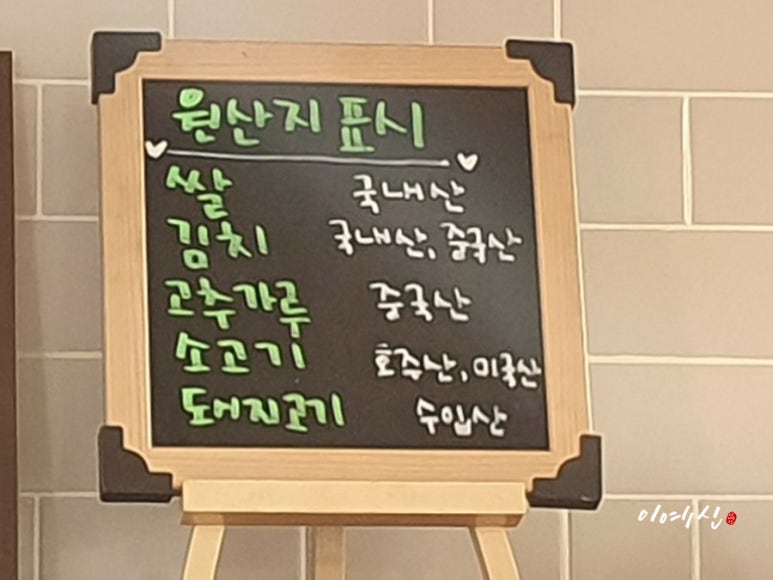 원산지 표시
쌀 국내산
김치 국내산, 중국산
고추가루 중국산
소고기 호주산, 미국산
돼지고기 수입산